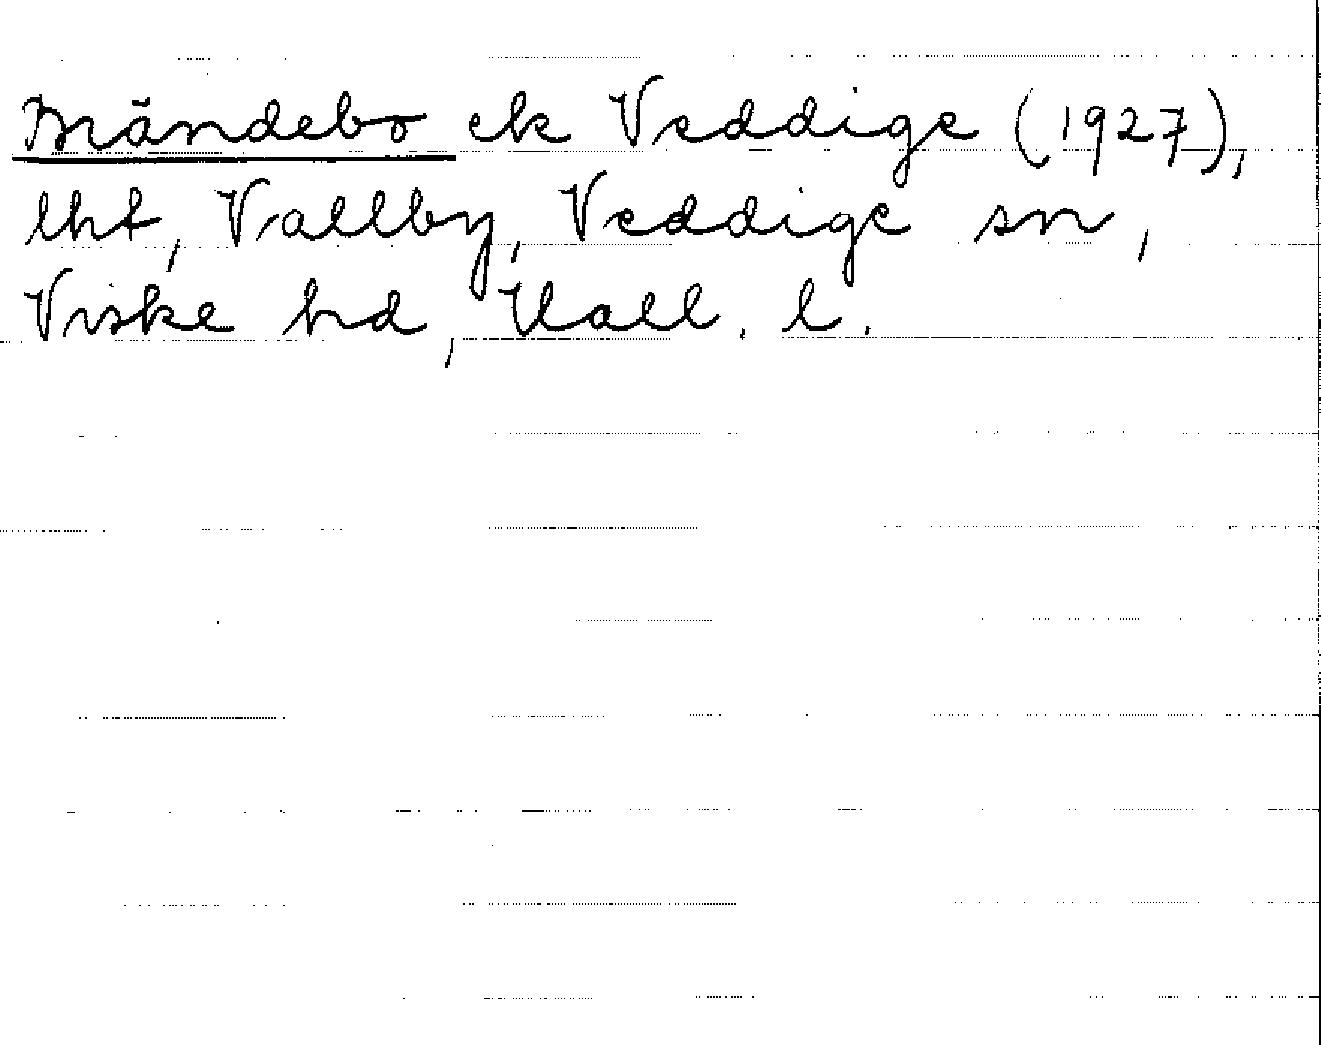 Mändebo ek Veddige (1927),
lht, Vallby, Veddige sn,
Viske hd, Hall. l.